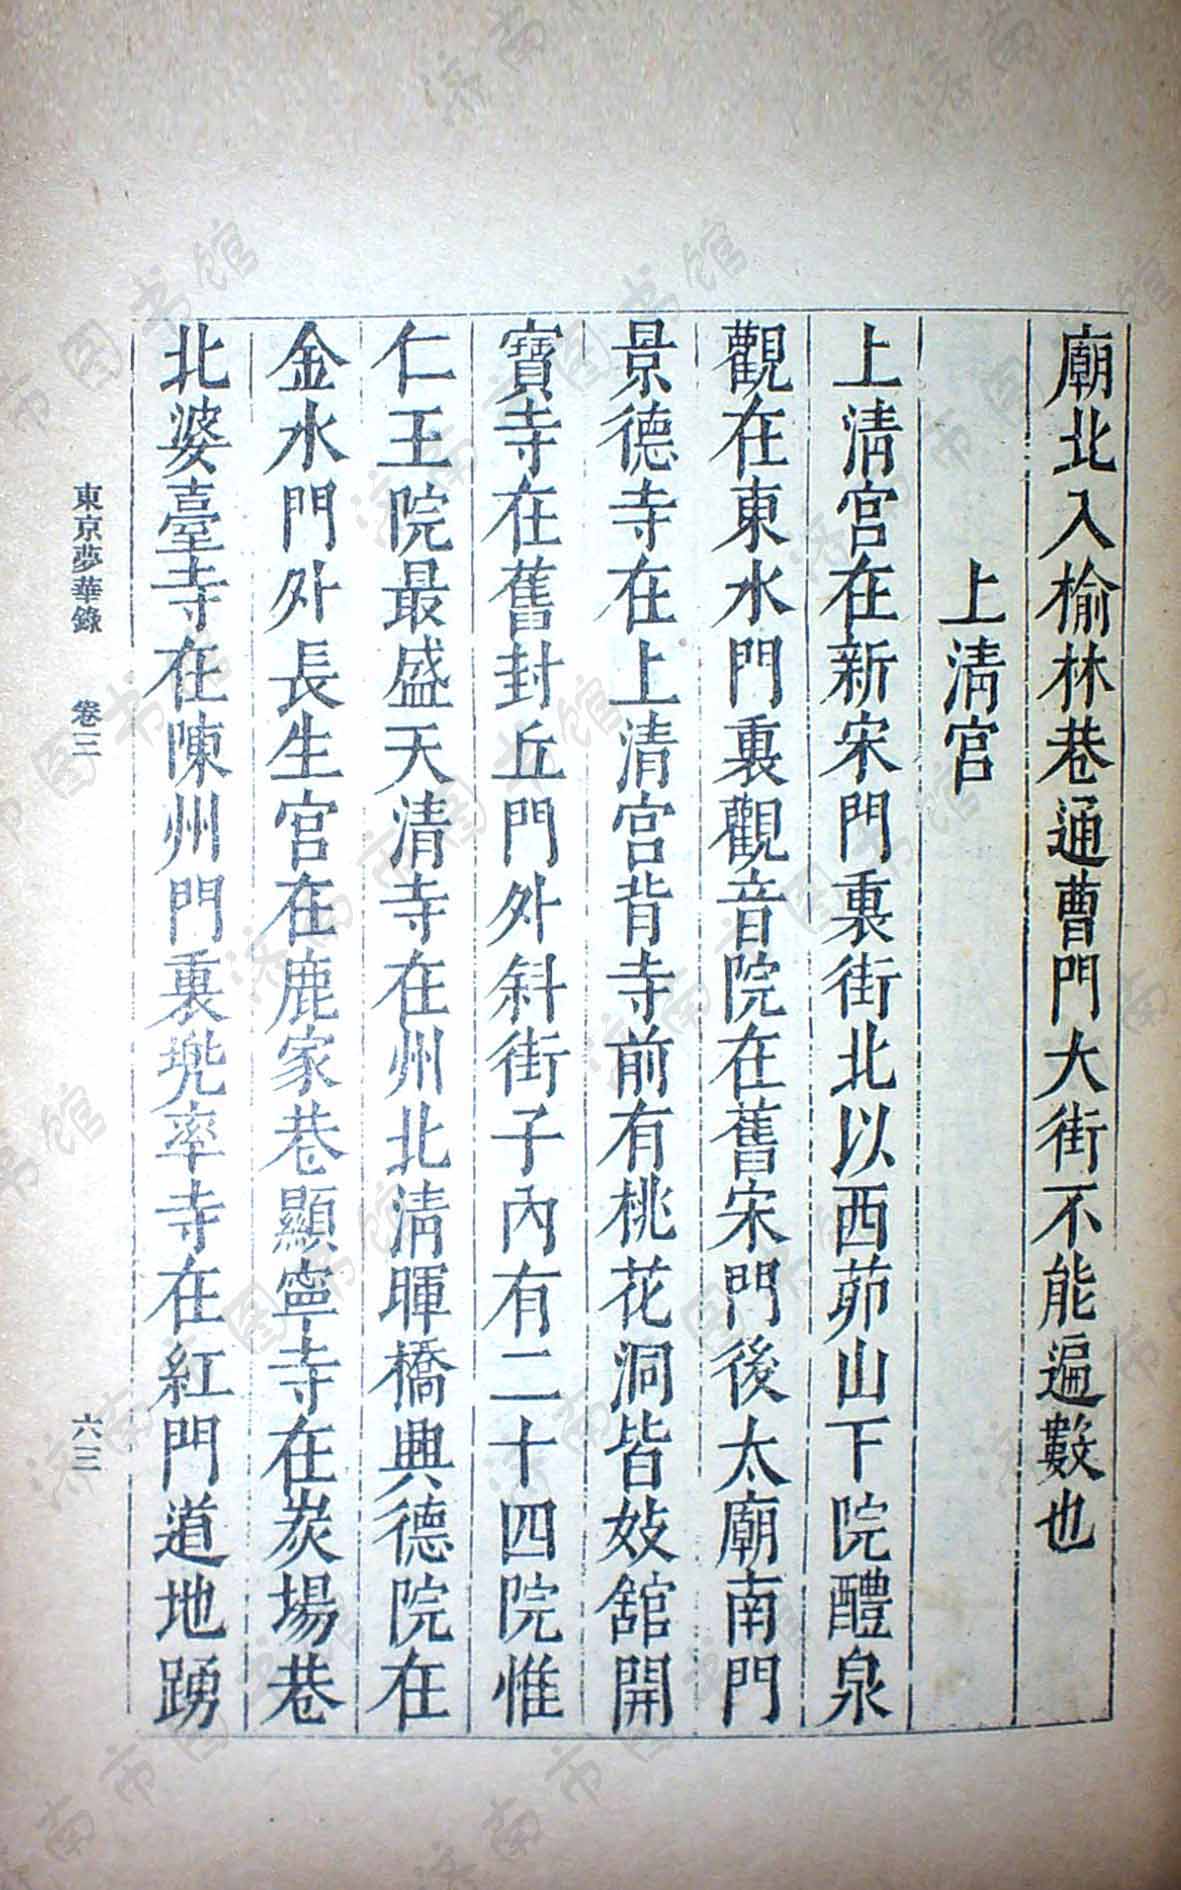 廟北入榆林巷通曹門大街不能遍數也
上清宮
上清宮在新宋門裏街北以西茆山下院醴泉
觀在東水門裏觀音院在舊宋門後太廟南門
景德寺在上清宮背寺前有桃花洞皆妓舘開
寶寺在舊封丘門外斜街子內有二十四院惟
仁王院最盛天清寺在州北清暉橋興德院在
金水門外長生宮在鹿家巷顯寧寺在炭場巷
北婆臺寺在陳州門裏兠率寺在紅門道地踴
東京夢華錄 卷三 六三
济南市图书馆